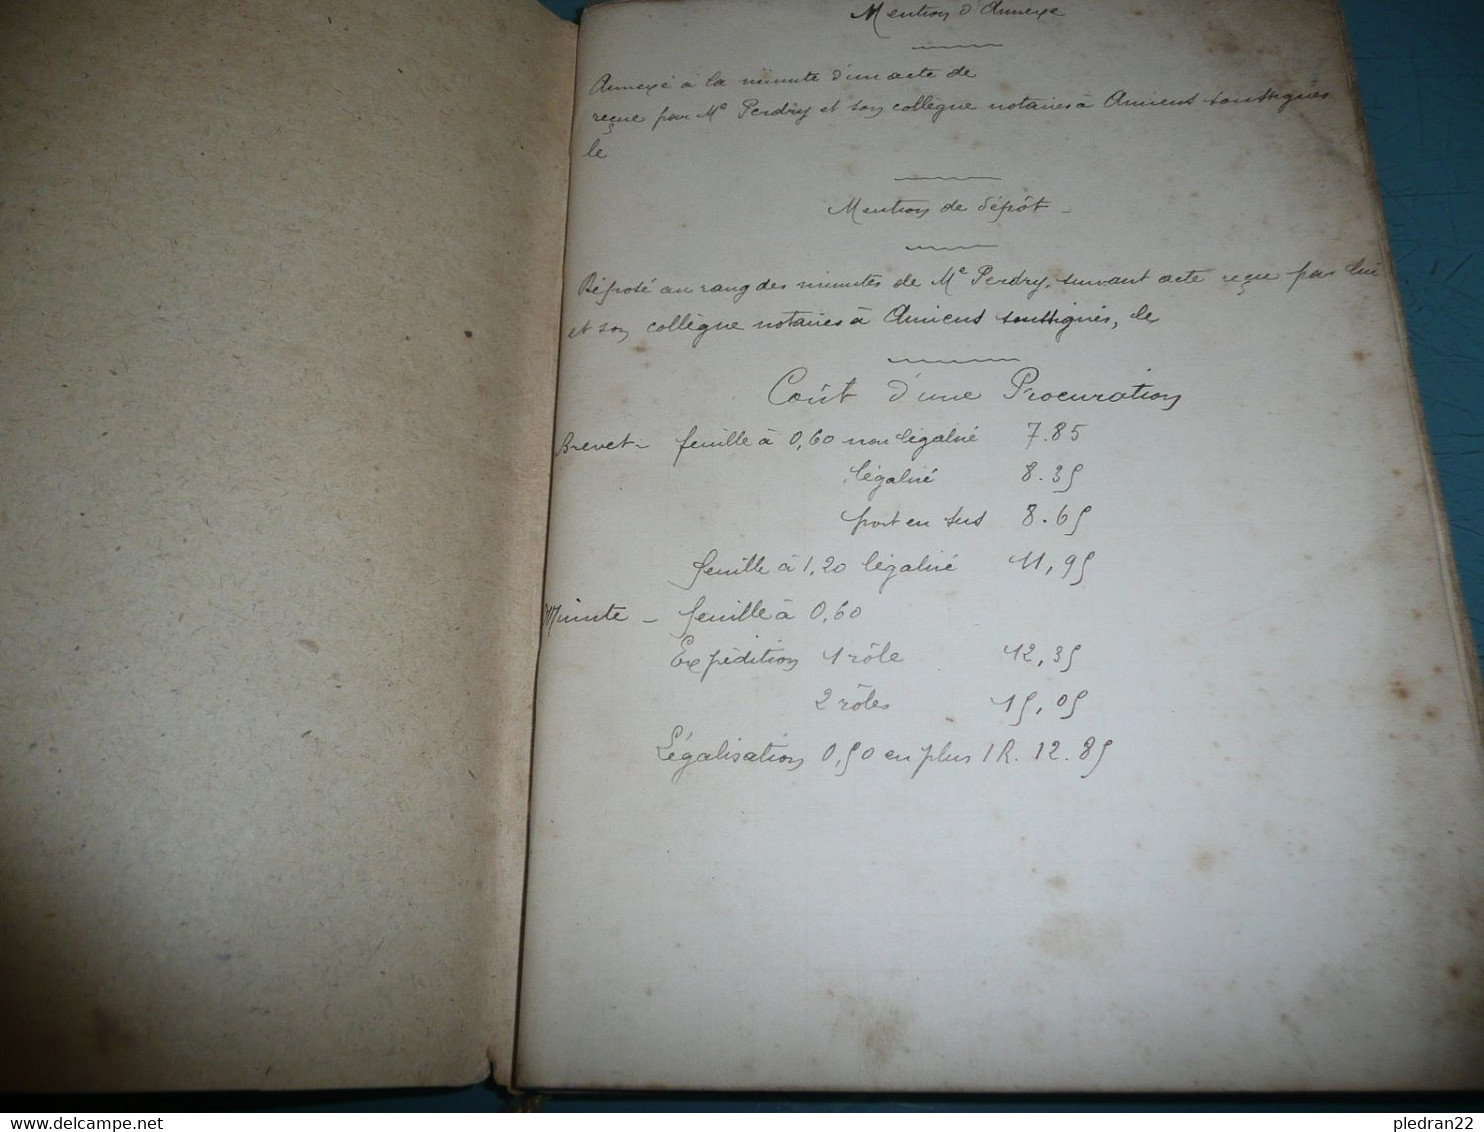 Mention d'Annexe
Annexé à la minute d'un acte de
reçue par Me Perdry et son collègue notaires à Amiens soussignés
le
Mention de dépôt -
Déposé au rang des minutes de Me Perdry, suivant acte reçu par lui
et son collègue notaires à Amiens soussignés, le
Coût d'une Procuration
Brevet - feuille à 0,60 non légalisé 7.85
légalisé 8.35
port en sus 8.65
feuille à 1,20 légalisé 11,95
Minute - feuille à 0,60
Expédition 1 rôle 12,35
2 rôles 15,05
Légalisation 0,50 en plus 1 R. 12.85
Delcampe.net
pledran22